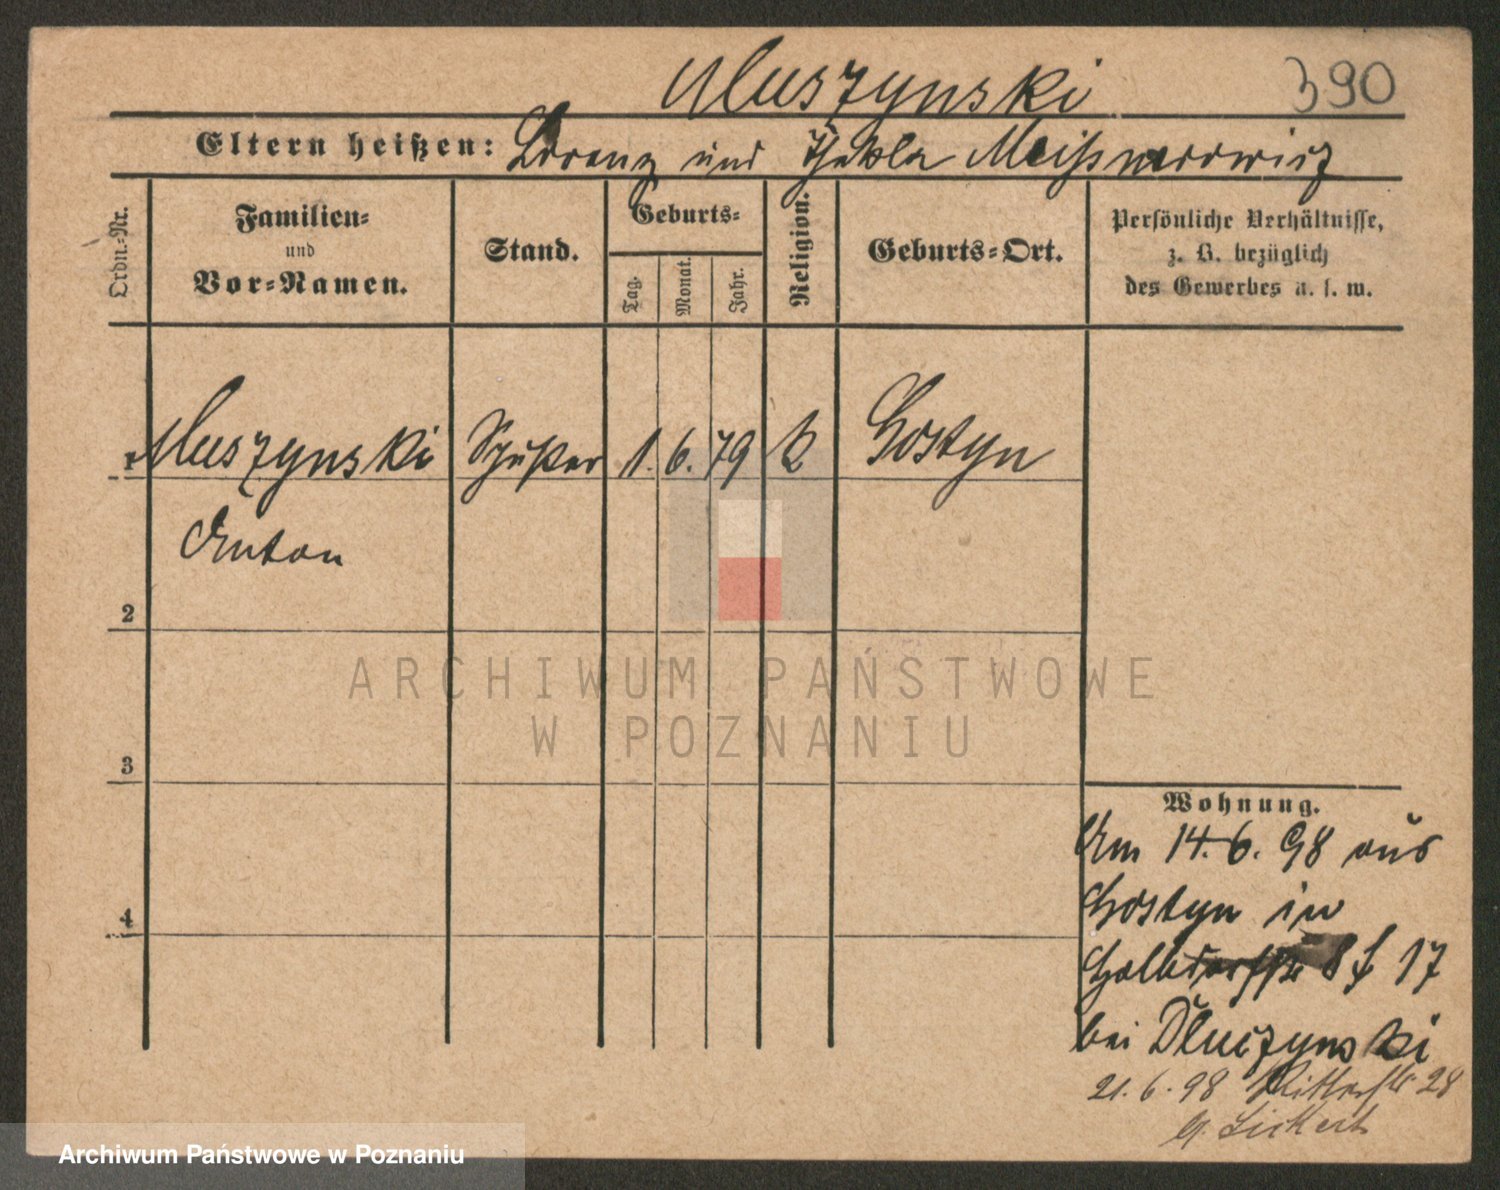 Muszynski 390
Eltern heißen: Lorenz und Thekla
Ordn.-Nr.
Familien-
und
Vor-Namen.
Stand.
Geburts-
Tag.
Monat.
Jahr.
Religion.
Geburts-Ort.
Persönliche Verhältnisse,
z. B. bezüglich
des Gewerbes u. s. w.
1 Muszynski 1. 6. 79 k Gostyn
Anton
2
3
4
ARCHIWUM PAŃSTWOWE
W POZNANIU
Wohnung.
Am 14. 6. 98 aus
Gostyn in
17
bei Dluczynski
21. 6. 98 Ritterstr 28
Archiwum Państwowe w Poznaniu